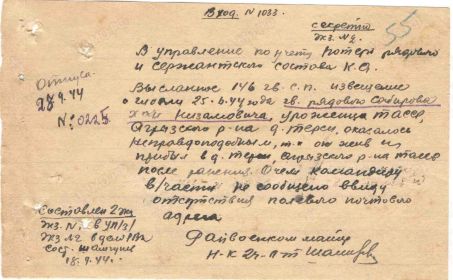 Вход. N 1033.
секретно
Экз. № 2.
55
В управление по учету потерь рядового
и сержантского состава К.А.
Отпуск.
28.9.44
№ 0225
Высланное 146 гв. с.п. извещение
о гибели 25.6.44 года гв. рядового Сабирова
Низамовича, уроженца ТАССР,
Агрызского р-на д. Терси, оказалось
неправдоподобным, т.к. он жив и
прибыл в д. Терси, Агрызского р-на ТАССР
после ранения. О чем командиру
в/части не сообщено ввиду
отсутствия полевого почтового
адреса
Составлен 2 экз
Экз. № 1 в УП/з/
Экз № 2 в дело РВК
сост.
18.9.44г.
Райвоенком майор
Н-к 2ч-л-т